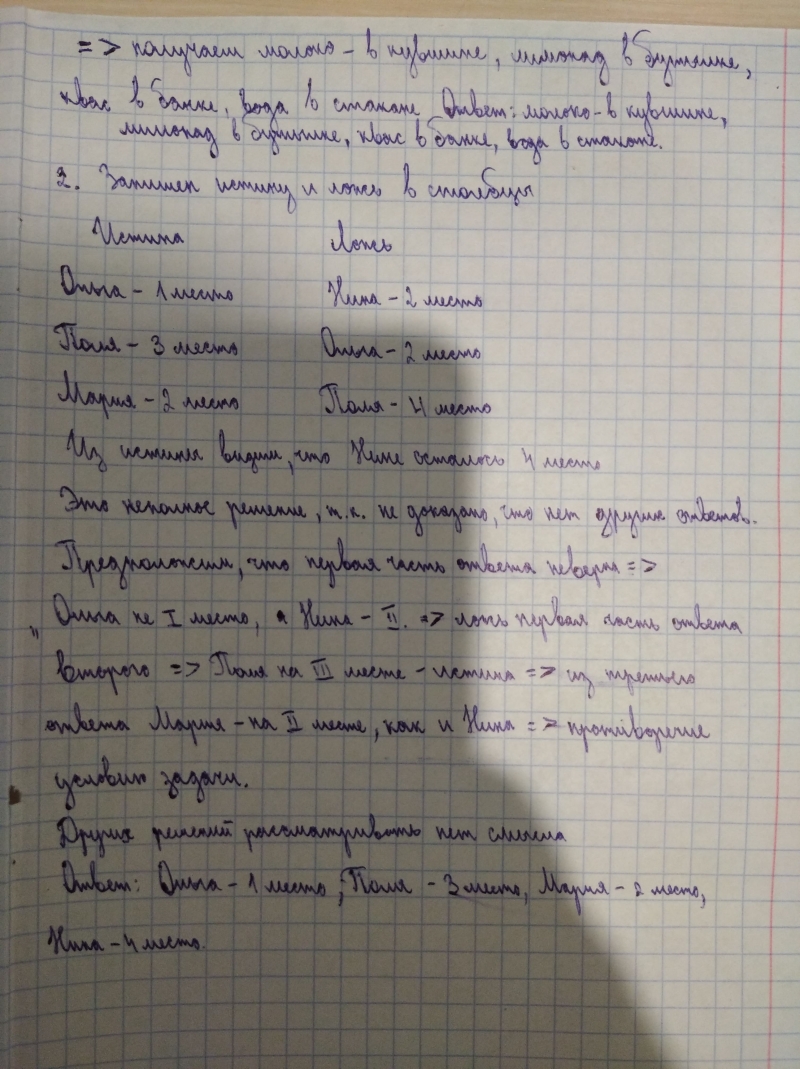 => получаем молоко - в кувшине, лимонад в бутылке,
квас в банке, вода в стакане Ответ: молоко - в кувшине,
лимонад в бутылке, квас в банке, вода в стакане.
2. Запишем истину и ложь в столбцы
Истина Ложь
Ольга - 1 место Нина - 2 место
Поля - 3 место Ольга - 2 место
Мария - 2 место Поля - 4 место
Из истины видим, что Нине осталось 4 место
Это неполное решение, т.к. не доказано, что нет других ответов.
Предположим, что первая часть ответа неверна =>
Ольга не I место, а Нина - II. => ложь первая часть ответа
второго => Поля на III месте - истина => из третьего
ответа Мария - на II месте, как и Нина => противоречие
условию задачи.
Других решений рассматривать нет смысла
Ответ: Ольга - 1 место, Поля - 3 место, Мария - 2 место,
Нина - 4 место.